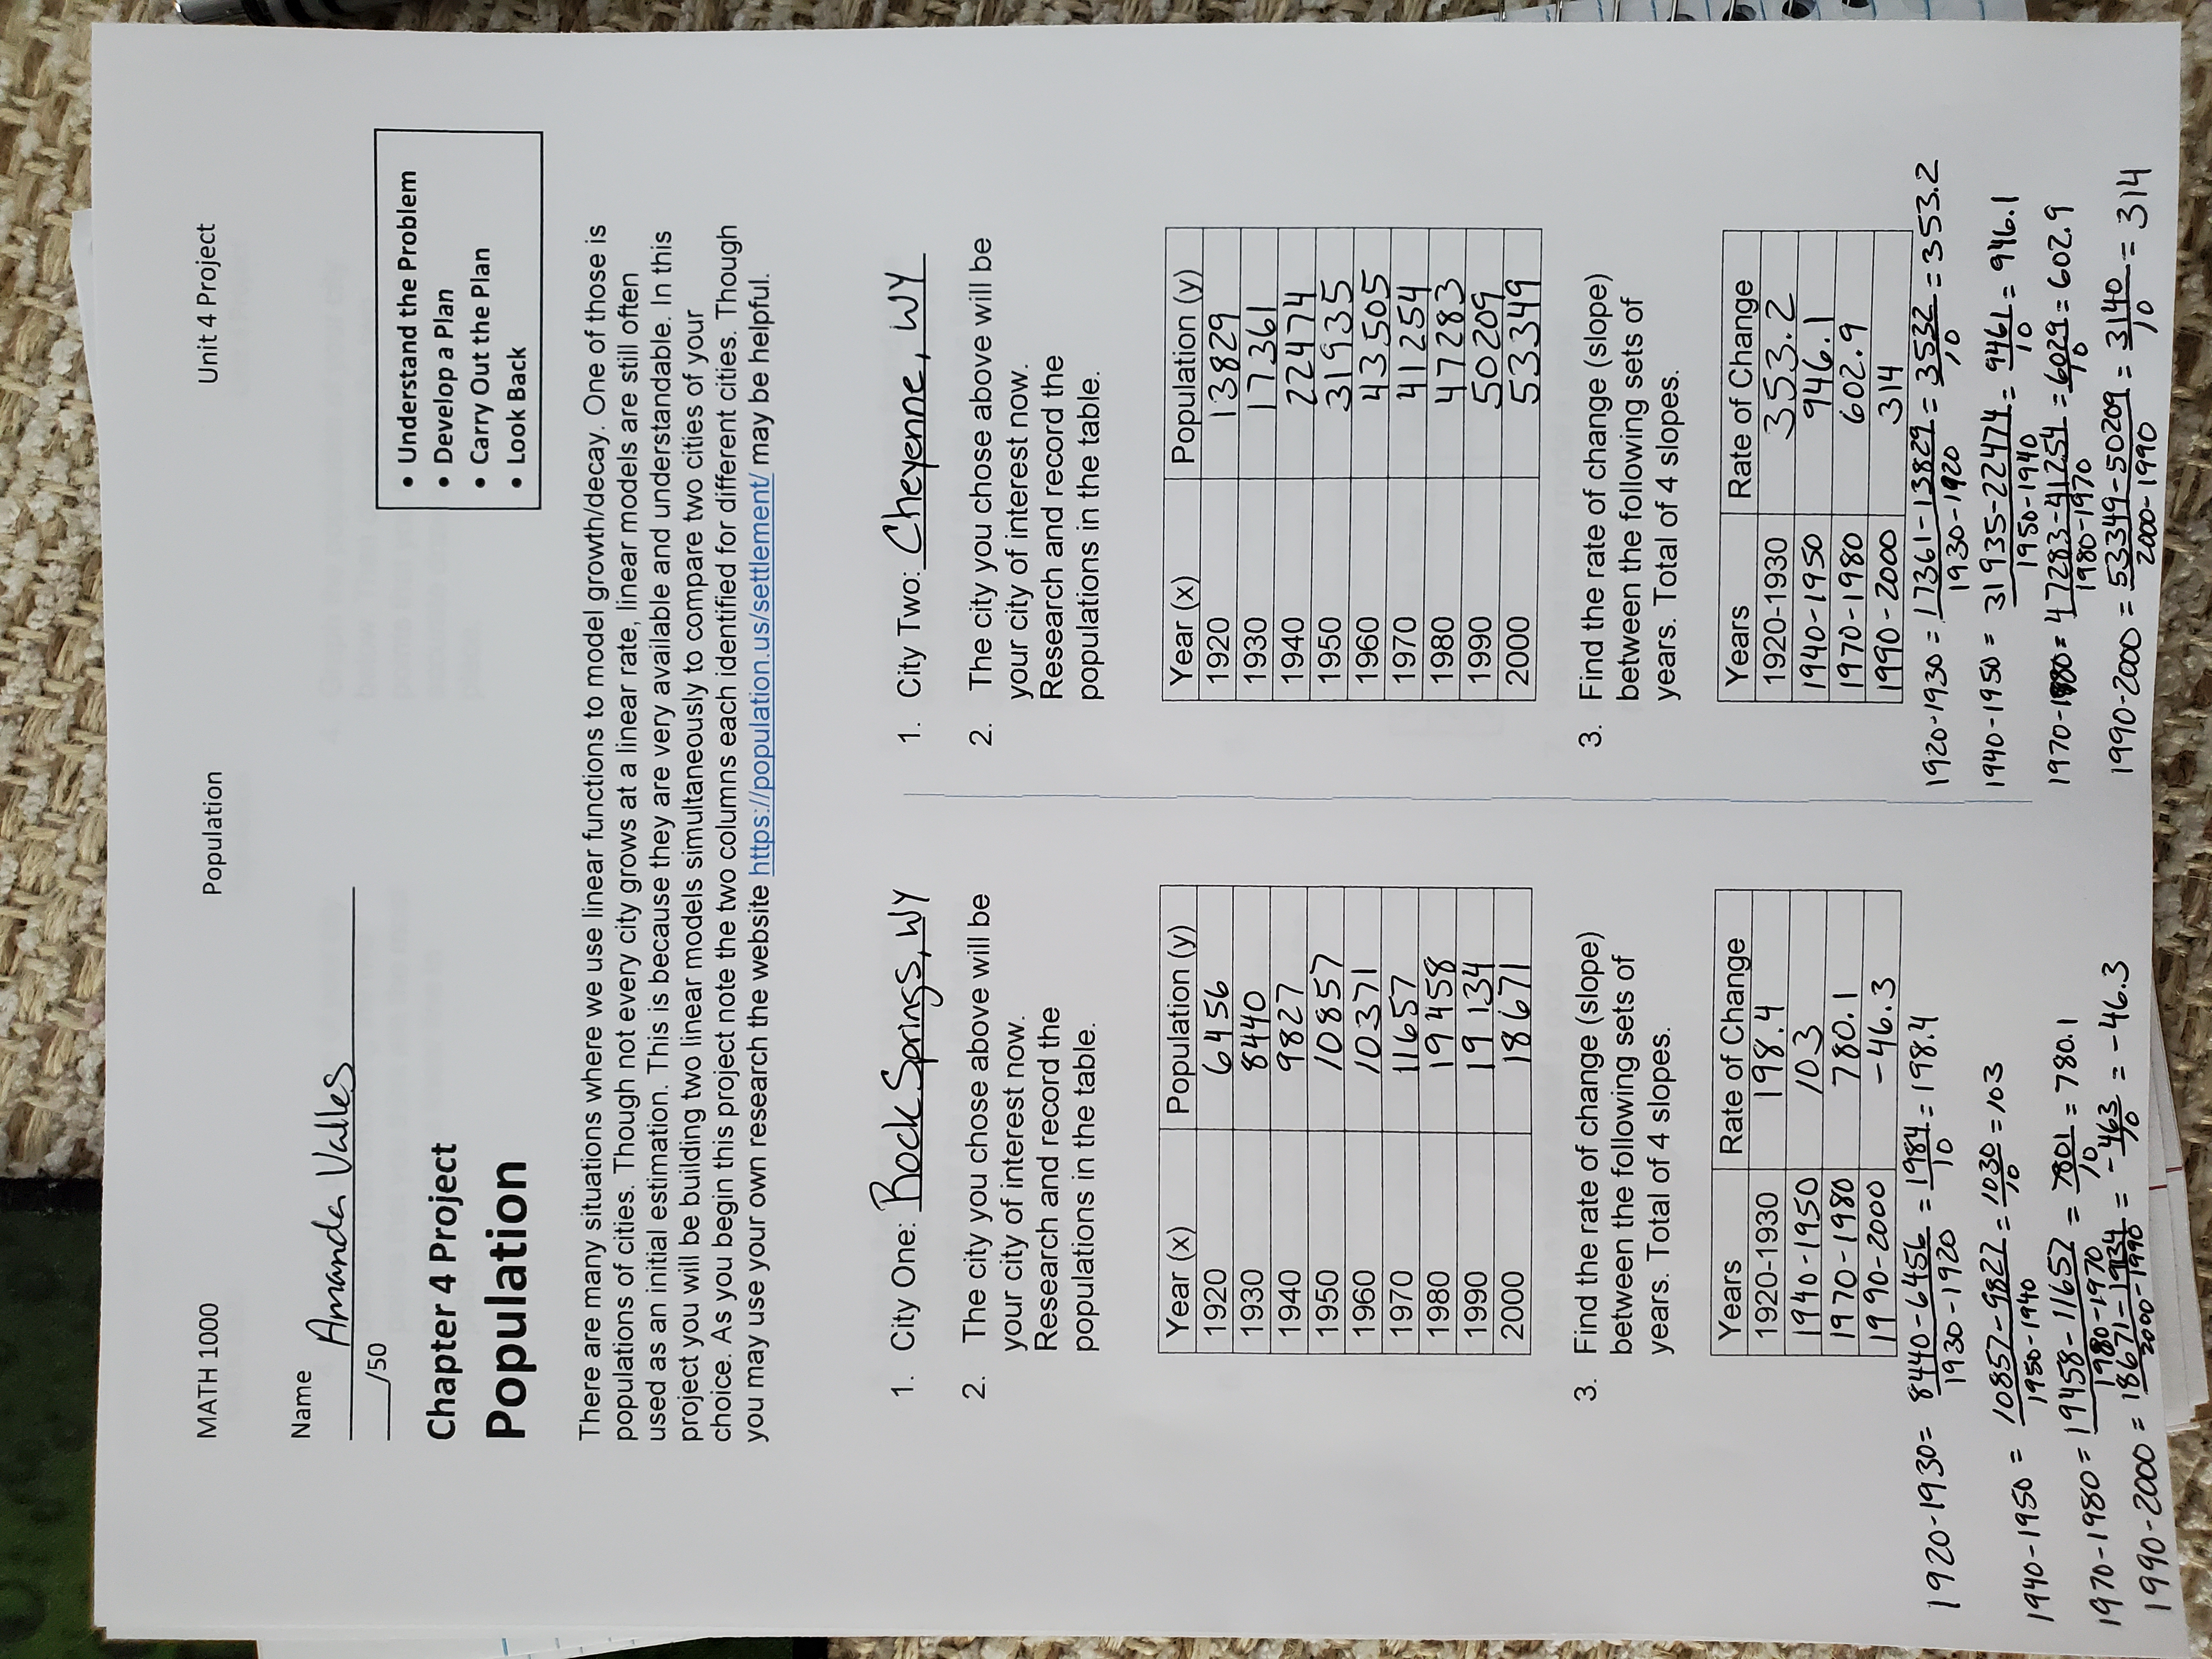 MATH 1000 Population Unit 4 Project
Name Amanda Valles
___/50
Chapter 4 Project
Population
• Understand the Problem
• Develop a Plan
• Carry Out the Plan
• Look Back
There are many situations where we use linear functions to model growth/decay. One of those is
populations of cities. Though not every city grows at a linear rate, linear models are still often
used as an initial estimation. This is because they are very available and understandable. In this
project you will be building two linear models simultaneously to compare two cities of your
choice. As you begin this project note the two columns each identified for different cities. Though
you may use your own research the website https://population.us/settlement/ may be helpful.
1. City One: Rock Springs, WY
2. The city you chose above will be
your city of interest now.
Research and record the
populations in the table.
Year (x) Population (y)
1920 6456
1930 8440
1940 9827
1950 10857
1960 10371
1970 11657
1980 19458
1990 19134
2000 18671
3. Find the rate of change (slope)
between the following sets of
years. Total of 4 slopes.
Years Rate of Change
1920-1930 198.4
1940-1950 103
1970-1980 780.1
1990-2000 -46.3
1920-1930 = 8440-6456 = 1984 = 198.4
1930-1920 10
1940-1950 = 10857-9827 = 1030 = 103
1950-1940 10
1970-1980 = 19458-11657 = 7801 = 780.1
1980-1970 10
1990-2000 = 18671-19134 = -463 = -46.3
2000-1990 10
1. City Two: Cheyenne, WY
2. The city you chose above will be
your city of interest now.
Research and record the
populations in the table.
Year (x) Population (y)
1920 13829
1930 17361
1940 22474
1950 31935
1960 43505
1970 41254
1980 47283
1990 50209
2000 53349
3. Find the rate of change (slope)
between the following sets of
years. Total of 4 slopes.
Years Rate of Change
1920-1930 353.2
1940-1950 946.1
1970-1980 602.9
1990-2000 314
1920-1930 = 17361-13829 = 3532 = 353.2
1930-1920 10
1940-1950 = 31935-22474 = 9461 = 946.1
1950-1940 10
1970-1980 = 47283-41254 = 6029 = 602.9
1980-1970 10
1990-2000 = 53349-50209 = 3140 = 314
2000-1990 10